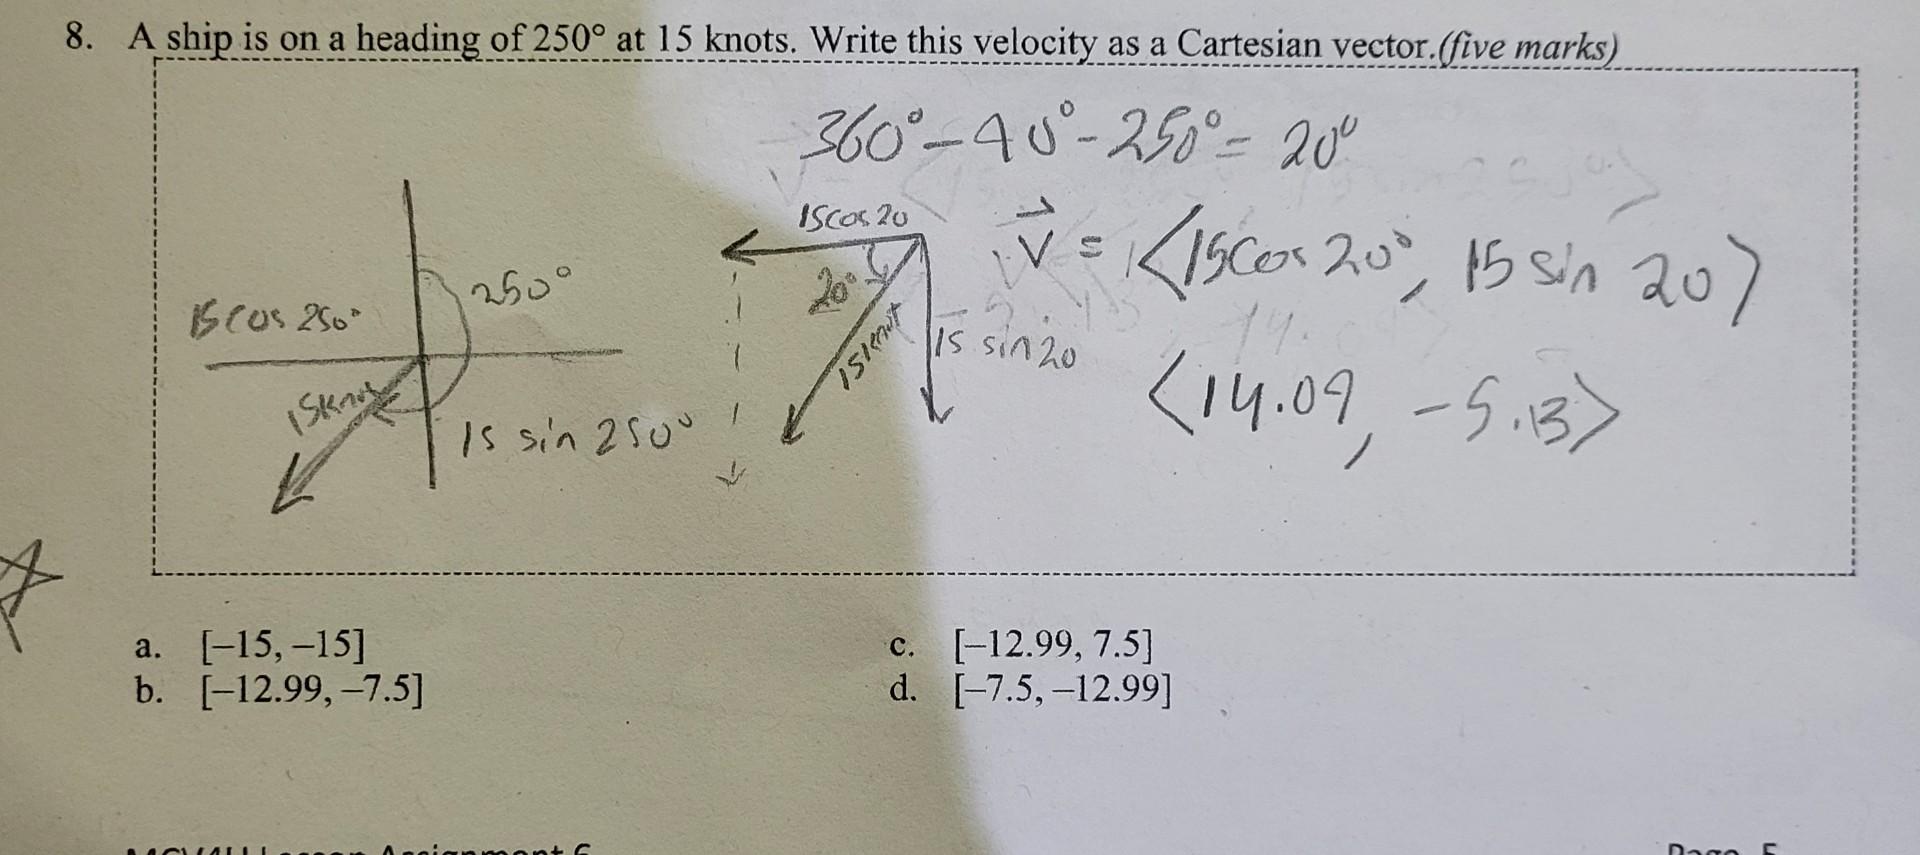 8. A ship is on a heading of 250° at 15 knots. Write this velocity as a Cartesian vector.(five marks)
360° - 90° - 250° = 20°
15cos 20
15 cos 250°
250°
20°
15knot
15 sin 20
V = <15cos 20°, 15 sin 20>
15knot
15 sin 250°
<14.09, -5.13>
a. [–15, –15]
b. [–12.99, –7.5]
c. [–12.99, 7.5]
d. [–7.5, –12.99]